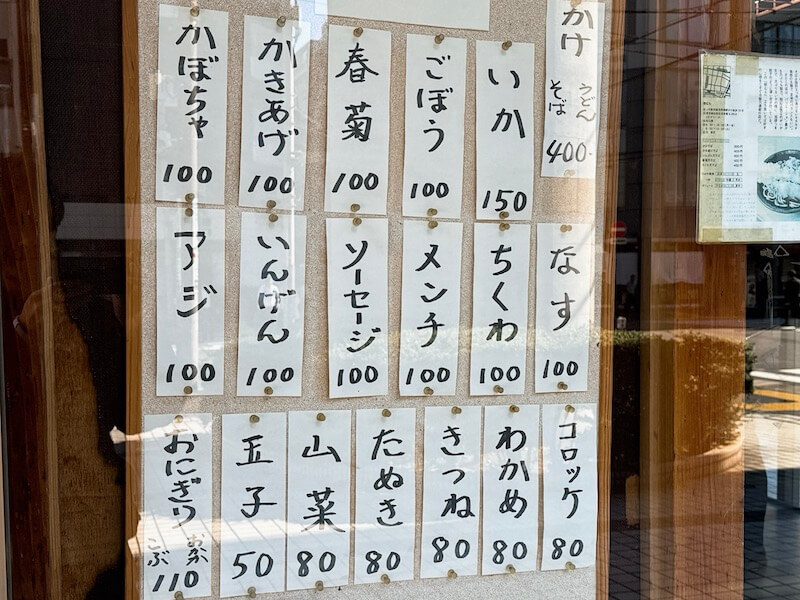 かけ
うどん
そば
400.
いか
150
ごぼう
100
春菊
100
かきあげ
100
かぼちゃ
100
なす
100
ちくわ
100
メンチ
100
ソーセージ
100
いんげん
100
アジ
100
コロッケ
80
わかめ
80
きつね
80
たぬき
80
山菜
80
玉子
50
おにぎり
おかか
こぶ
110